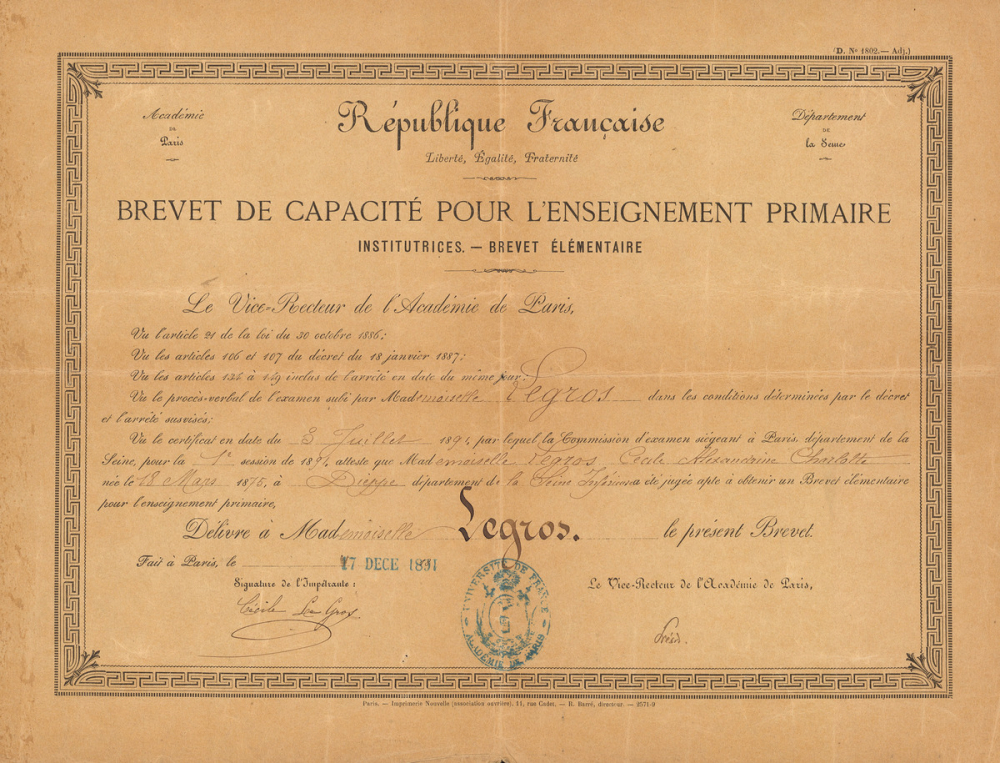 (D. No 1802.— Adj.)
Académie
DE
Paris
République Française
Liberté, Égalité, Fraternité
Département
DE
la Seine
BREVET DE CAPACITÉ POUR L'ENSEIGNEMENT PRIMAIRE
INSTITUTRICES. — BREVET ÉLÉMENTAIRE
Le Vice-Recteur de l'Académie de Paris,
Vu l'article 21 de la loi du 30 octobre 1886;
Vu les articles 106 et 107 du décret du 18 janvier 1887;
Vu les articles 134 à 149 inclus de l'arrêté en date du même jour;
Vu le procès-verbal de l'examen subi par Mademoiselle Legros dans les conditions déterminées par le décret
et l'arrêté susvisés;
Vu le certificat en date du 3 Juillet 1891, par lequel la Commission d'examen siégeant à Paris, département de la
Seine, pour la 1e session de 1891, atteste que Mademoiselle Legros Cécile Alexandrine Charlotte
née le 18 Mars 1875, à Dieppe département de la Seine Inférieure a été jugée apte à obtenir un Brevet élémentaire
pour l'enseignement primaire,
Délivre à Mademoiselle Legros. le présent Brevet.
Fait à Paris, le 17 DECE 1891
Signature de l'Impétrante :
Cécile Le Gros
UNIVERSITÉ DE FRANCE
ACADÉMIE DE PARIS
Le Vice-Recteur de l'Académie de Paris,
Paris. — Imprimerie Nouvelle (association ouvrière), 11, rue Cadet. — R. Barré, directeur. — 2571-9